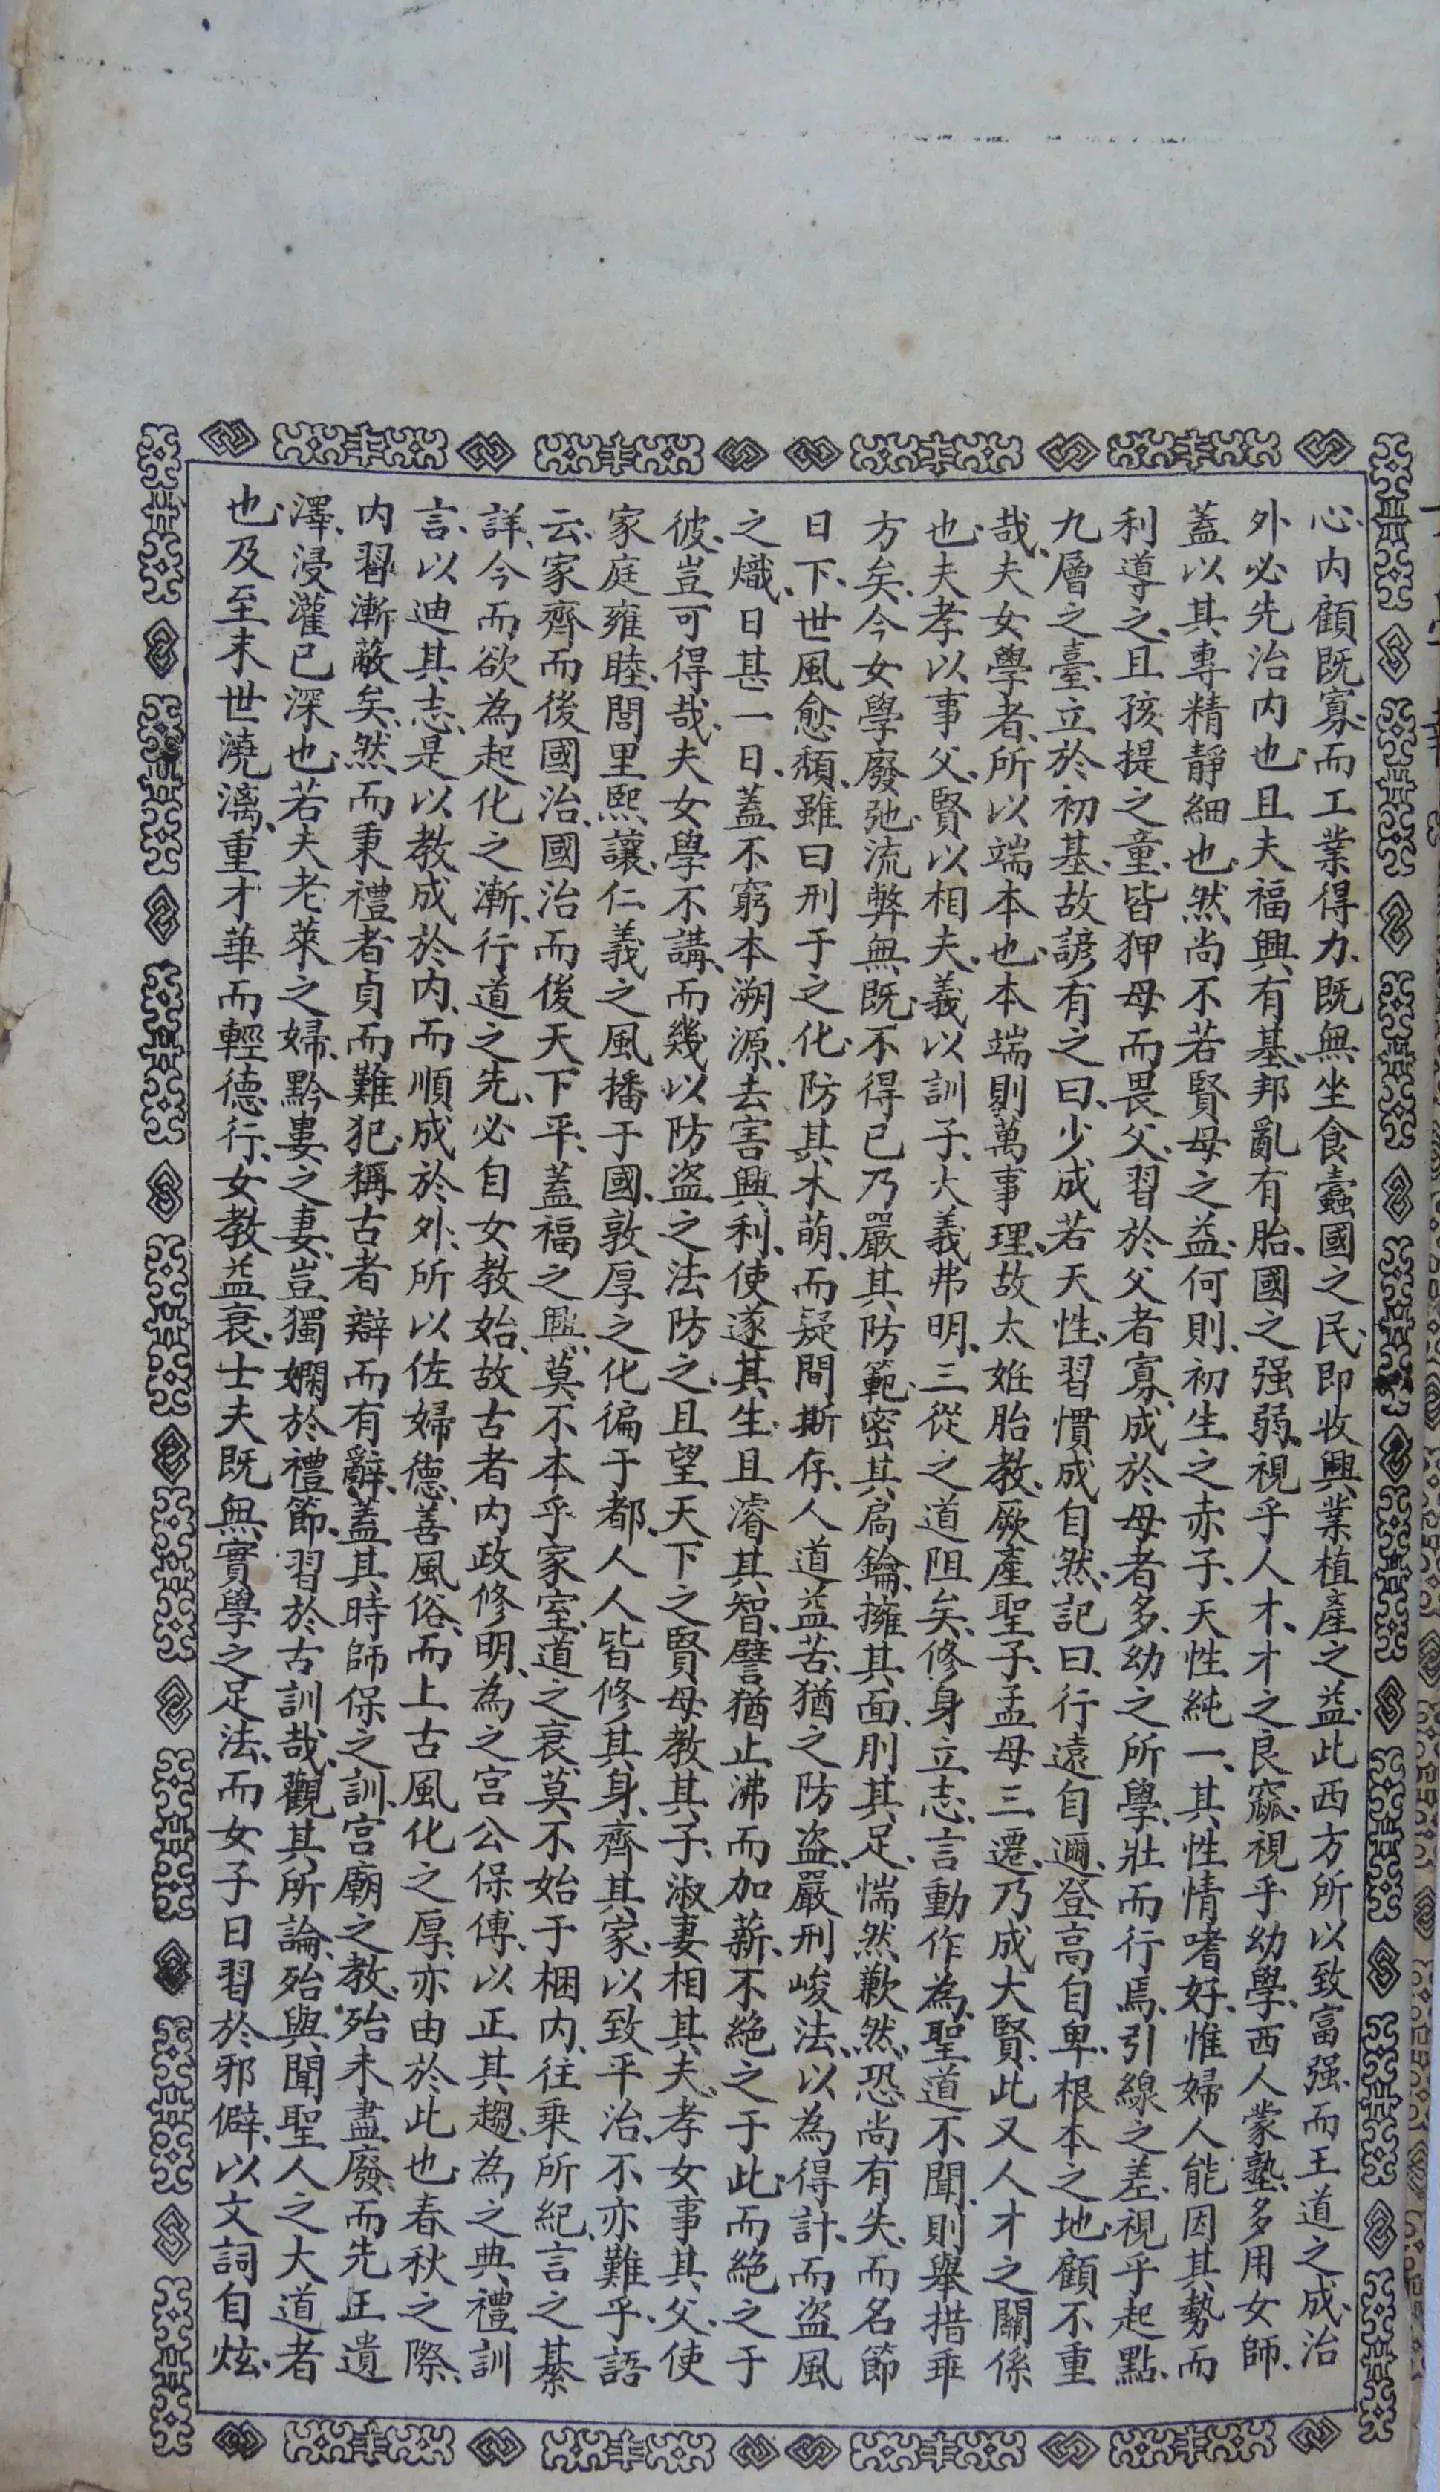 心、内顧既寡、而工業得力、既無坐食蠹國之民、即收興業植產之益、此西方所以致富强、而王道之成、治
外必先治内也、且夫福興有基、邦亂有胎、國之强弱、視乎人才、才之良窳、視乎幼學、西人蒙塾、多用女師、
蓋以其專精靜細也、然尚不若賢母之益、何則、初生之赤子、天性純一、其性情嗜好、惟婦人能因其勢而
利導之、且孩提之童、皆狎母而畏父、習於父者寡、成於母者多、幼之所學、壯而行焉、引線之差、視乎起點、
九層之臺、立於初基、故諺有之曰、少成若天性、習慣成自然、記曰、行遠自邇、登高自卑、根本之地、顧不重
哉、夫女學者、所以端本也、本端則萬事理、故太姙胎教、厥產聖子、孟母三遷、乃成大賢、此又人才之關係
也、夫孝以事父、賢以相夫、義以訓子、大義弗明、三從之道阻矣、修身立志、言動作為、聖道不聞、則舉措乖
方矣、今女學廢弛、流弊無既、不得已乃嚴其防範、密其扃鑰、擁其面、刖其足、惴然歉然、恐尚有失、而名節
日下、世風愈頹、雖曰刑于之化、防其木萌、而疑間斯存、人道益苦、猶之防盗、嚴刑峻法、以為得計、而盗風
之熾、日甚一日、蓋不窮本溯源、去害興利、使遂其生、且濬其智、譬猶止沸而加薪、不絶之于此、而絶之于
彼、豈可得哉、夫女學不講、而幾以防盗之法防之、且望天下之賢母教其子、淑妻相其夫、孝女事其父、使
家庭雍睦、閭里熙讓、仁義之風播于國、敦厚之化徧于都、人人皆修其身、齊其家、以致平治、不亦難乎、語
云、家齊而後國治、國治而後天下平、蓋福之興、莫不本乎家室、道之衰、莫不始于梱内、往乘所紀、言之綦
詳、今而欲為起化之漸、行道之先、必自女教始、故古者内政修明、為之宮公保傅、以正其趨、為之典禮訓
言、以迪其志、是以教成於内、而順成於外、所以佐婦德、善風俗、而上古風化之厚、亦由於此也、春秋之際、
内習漸敝矣、然而秉禮者貞而難犯、稱古者辯而有辭、蓋其時師保之訓、宮廟之教、殆未盡廢、而先正遺
澤、浸灌已深也、若夫老萊之婦、黔婁之妻、豈獨嫻於禮節、習於古訓哉、觀其所論、殆與聞聖人之大道者
也、及至末世澆漓、重才華而輕德行、女教益衰、士夫既無實學之足法、而女子日習於邪僻、以文詞自炫、